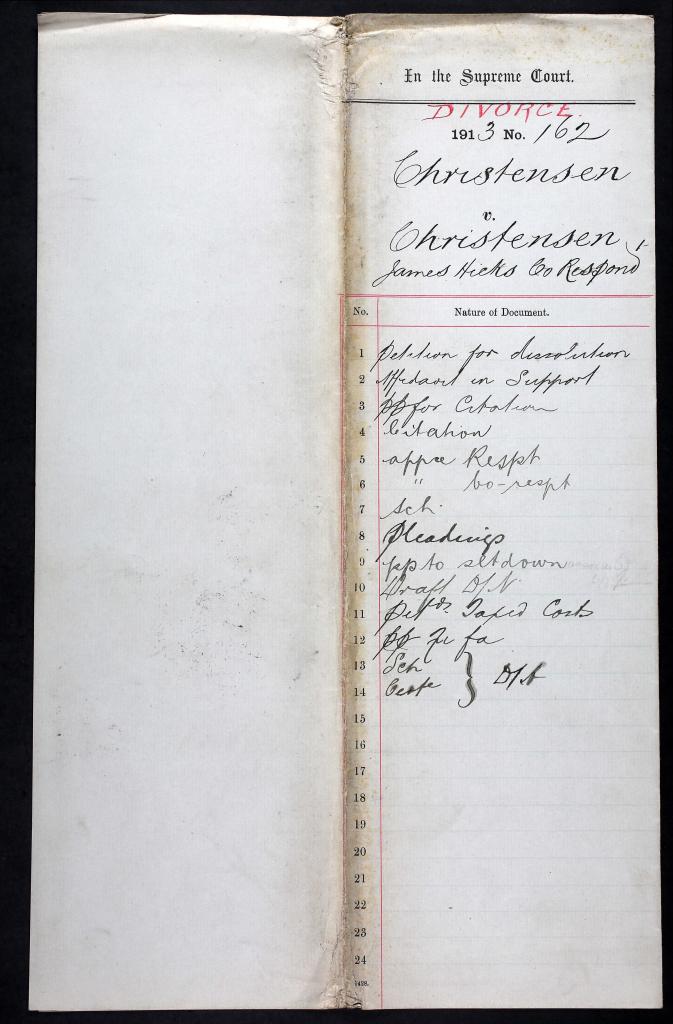 In the Supreme Court.
DIVORCE.
1913 No. 162
Christensen
v.
Christensen
James Hicks Co Respond
No. Nature of Document.
1 Petition for dissolution
2 Affidavit in Support
3 pp for Citation
4 Citation
5 appce Respt
6 " Co-respt
7 Sch
8 Pleadings
9 pp to setdown
10 Draft D/N
11 Taxed Costs
12 pp Fi fa
13 Sch
14 Certe } D/A
15
16
17
18
19
20
21
22
23
24